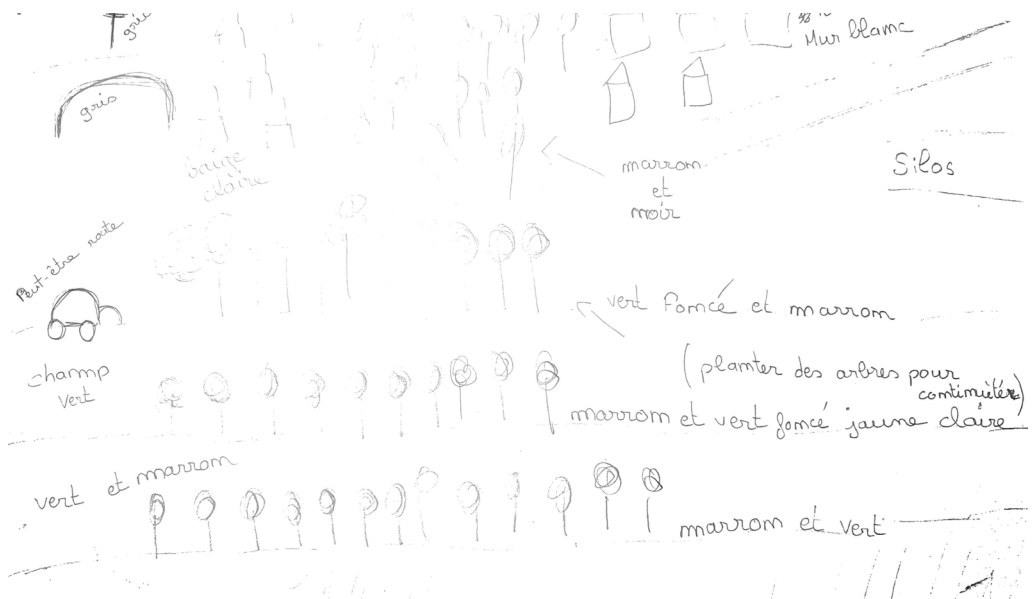 gris
Mur blanc
gris
baige
claire
marrom
et
moir
Silos
Peut-être route
vert fomcé et marrom
champ
vert
(plamter des arbres pour
comtimuitér)
marrom et vert fomcé jaume claire
vert et marrom
marrom et vert